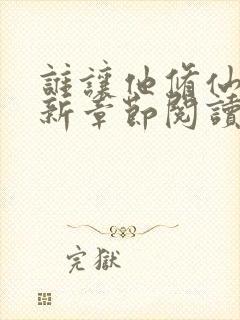 誰讓他修仙
新章節閱讀
完獄